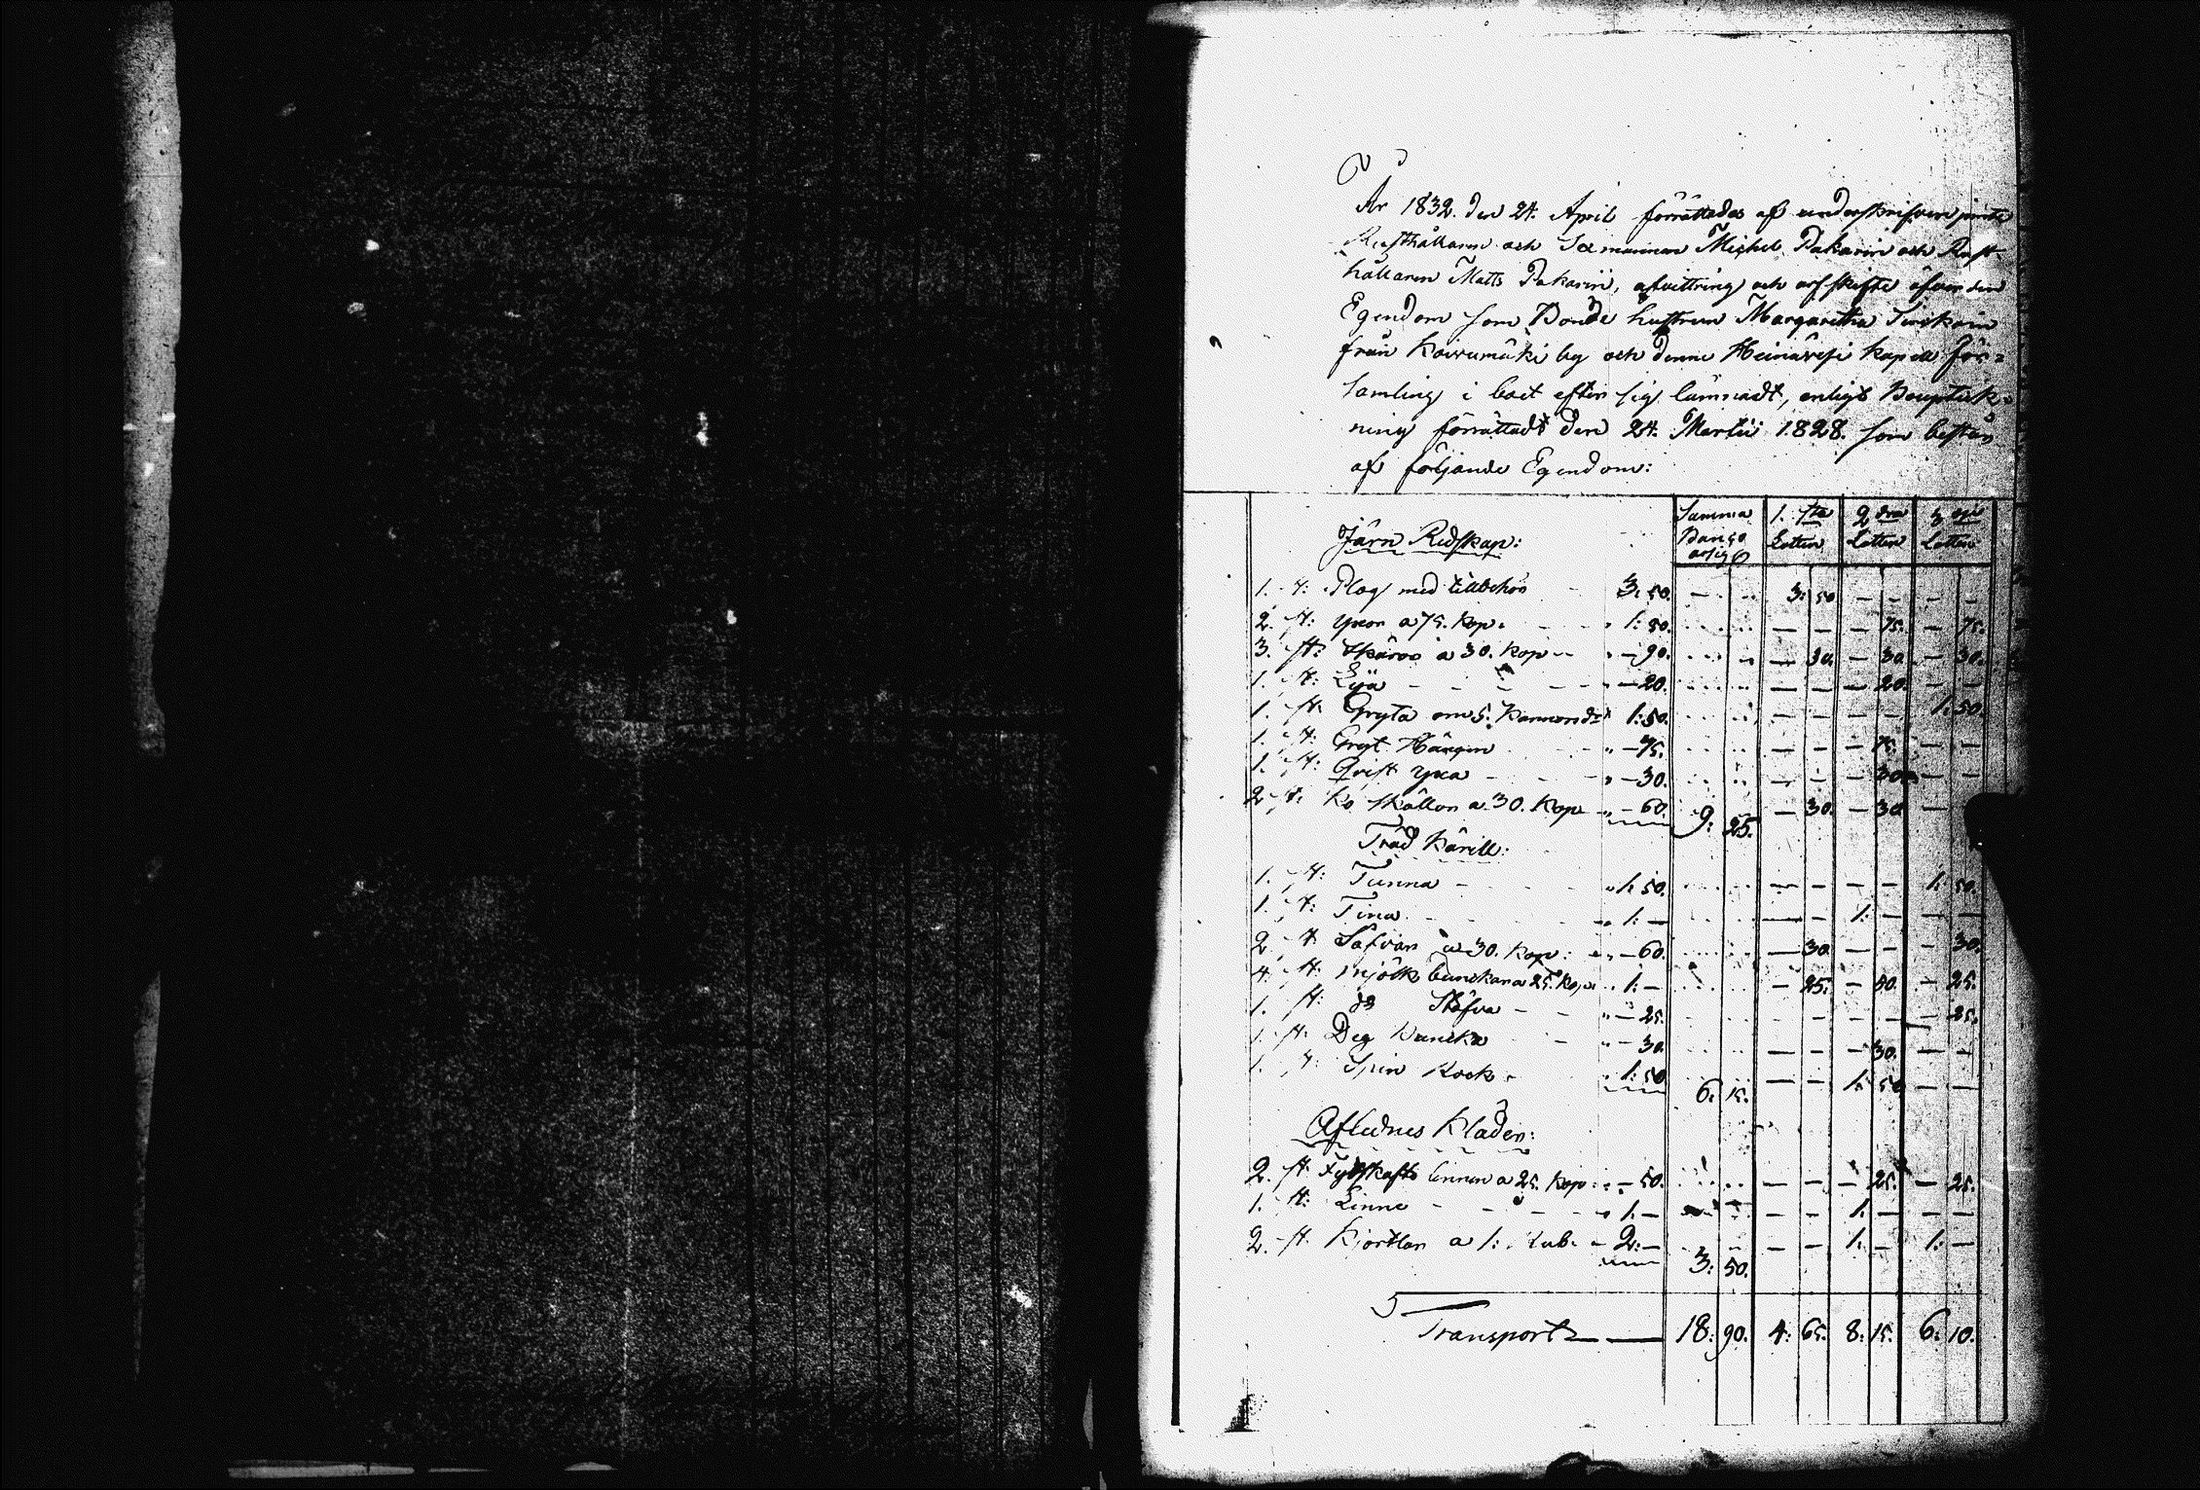 År 1832. den 24. April förrättades af underskrifven jemte
Rusthållaren och Sexmannen Michel Pakarin och Rust-
hållaren Matts Pakarin, afvittring och arfskifte öfver den
Egendom som Bonde hustrun Margaretha
från Koirumäki by och denne Heinävesi kapell för=
samling i boet efter sig lämnadt, enligt Bouptek=
ning förrättadt den 24. Martii 1828. som består
af följande Egendom:
Järn Redskap: Summa 1. sta Lotten 2 dra Lotten 3 dje Lotten
1. st: Plog med tillbehör 3: 50. 3: 50 — — — —
2. st: yxor a 75. kop. 1: 50. — — — 75. — 75.
3. st: Skäror a 30. kop — 90. — 30. — 30. — 30.
1. st: Lija — 20. — — — 20. — —
1. st: Gryta om 5. kannor 1: 50. 1: 50.
1. st: Gryt Hängen — 75. — — — 75. — —
1. st: Qvist yxa — 30. — — — 30. — —
2. st: Ko skällor a 30. Kop — 60. 9: 25. — 30. — 30. —
Träd Kärill:
1. st: Tunna 1: 50. — — — — 1: 50.
1. st: Tina 1: — — — 1: — — —
2. st: Såfvar a 30. kop: — 60. — 30. — — — 30.
4. st: Mjölk bunckar a 25. kop. 1: — — 25. — 50. — 25.
1. st: do Stäfva — 25. — — — — — 25.
1. st: Deg Buncka — 30. — — — 30. — —
1. st: Spin Rock 1: 50. 6: 15. — — 1: 50 — —
Aflednes Kläder:
2. st. linnen a 25. kop: — 50. — — — 25. — 25.
1. st: Linne 1: — — — 1: — — —
2. st. Kjortlar a 1: Rub. 2: — 3: 50. — — 1: — 1: —
Transport — 18: 90. 4: 65. 8: 15. 6: 10.